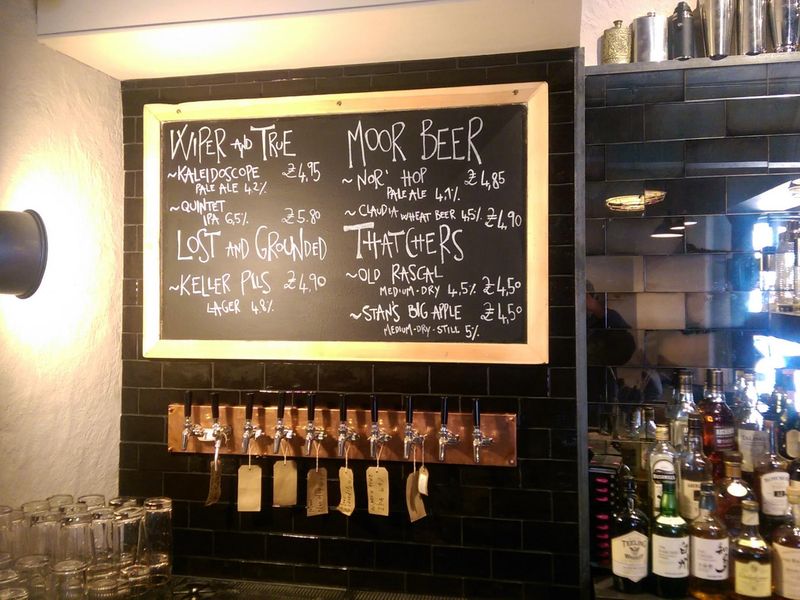 WIPER AND TRUE
~KALEIDOSCOPE £4,95
PALE ALE 4.2%
~QUINTET
IPA 6,5% £5.80
LOST AND GROUNDED
~KELLER PILS £4,90
LAGER 4.8%
MOOR BEER
~NOR' HOP £4,85
PALE ALE 4,1%
~CLAUDIA WHEAT BEER 4,5% £4,90
THATCHERS
~OLD RASCAL
MEDIUM-DRY 4,5% £4,50
~STAN'S BIG APPLE £4,50
MEDIUM-DRY-STILL 5%
TEELING
WHISKEY